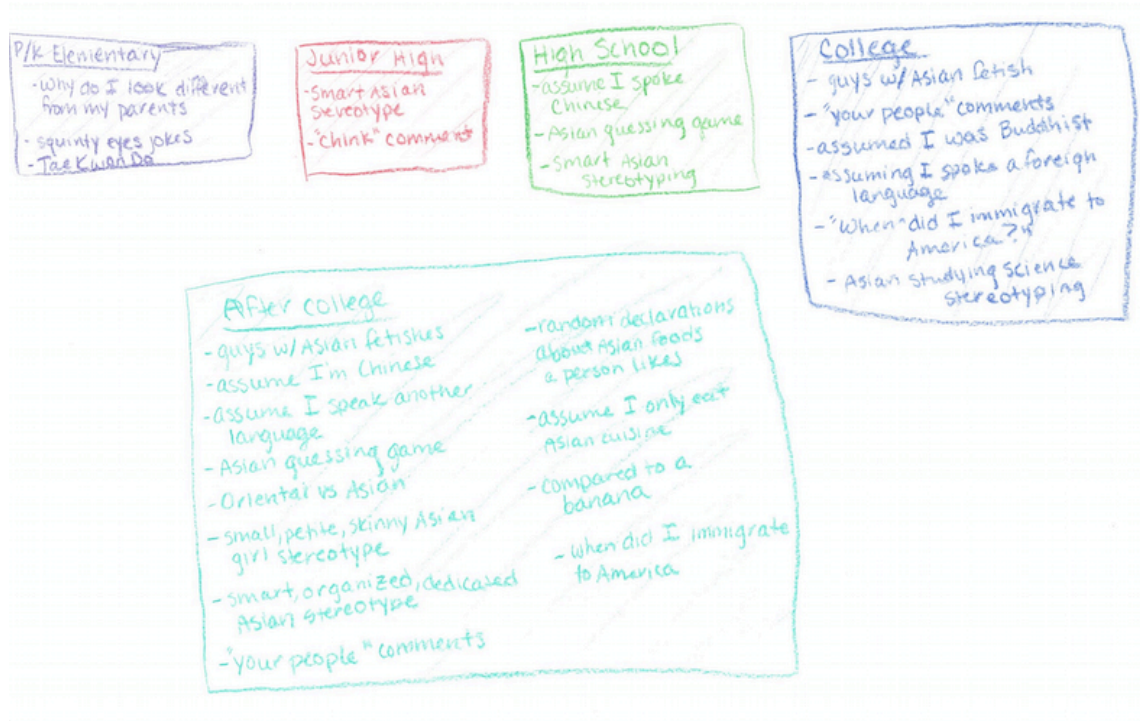 P/K Elementary
- Why do I look different
from my parents
- squinty eyes jokes
- Tae Kwan Do
Junior High
- Smart Asian
stereotype
- "Chink" comment
High School
- assume I spoke
Chinese
- Asian guessing game
- Smart Asian
stereotyping
College
- guys w/ Asian fetish
- "your people" comments
- assumed I was Buddhist
- assuming I spoke a foreign
language
- "When" did I immigrate to
America?"
- Asian studying science
stereotyping
After college
- guys w/ Asian fetishes
- assume I'm Chinese
- assume I speak another
language
- Asian guessing game
- Oriental vs Asian
- small, petite, skinny Asian
girl stereotype
- smart, organized, dedicated
Asian stereotype
- "your people" comments
- random declarations
about Asian foods
a person likes
- assume I only eat
Asian cuisine
- compared to a
banana
- when did I immigrate
to America